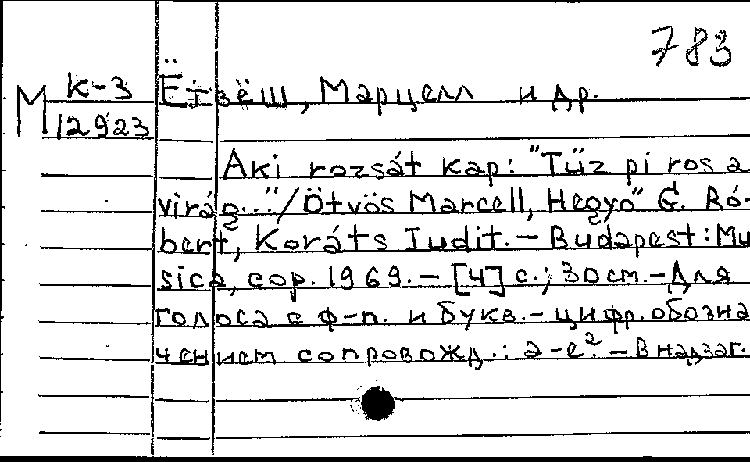 783
М К-3 Ётвёш, Марцелл и др.
12923
Aki rozsát kap: "Tüz piros a
virág..." / Ötvös Marcell, Hegyo" G. Ró-
bert, Koráts Iudit. – Budapest: Mu
sica, cop. 1969. – [4] с.; 30 см. – Для
голоса с ф-п. и букв.-цифр. обозна
чением сопровожд.: a-e². – В надзаг.